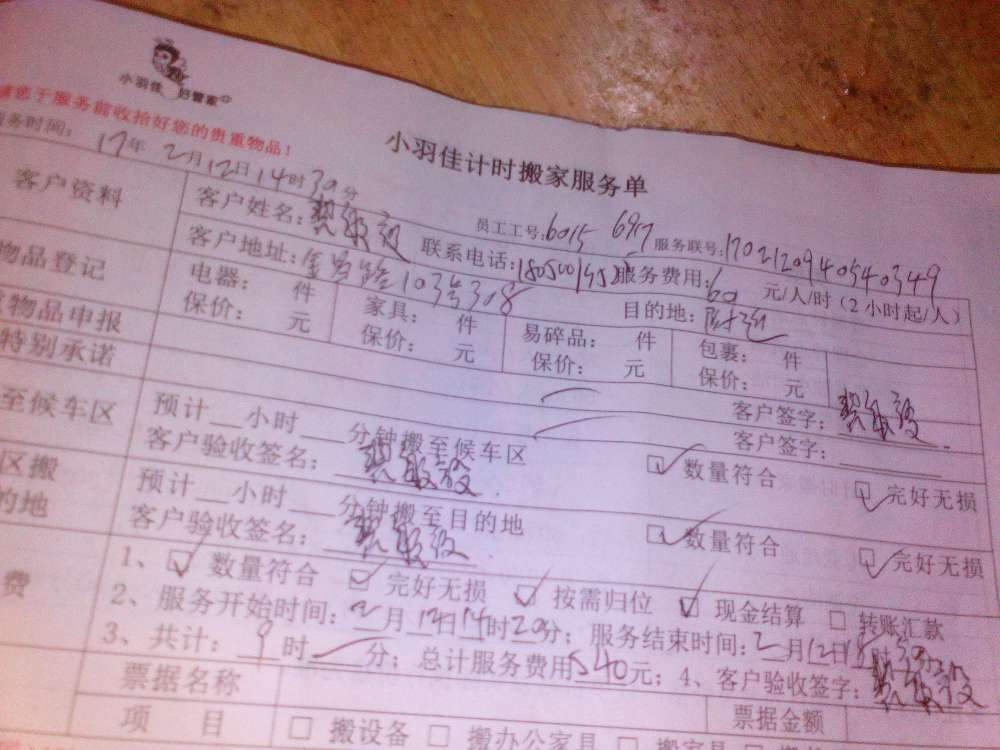 小羽佳 好管家
您于服务前收拾好您的贵重物品!
小羽佳计时搬家服务单
务时间: 17年 2月12日14时30分
员工工号:6015 服务联号:1702120940540349
客户资料
客户姓名: 联系电话: 服务费用:60 元/人/时(2小时起/人)
客户地址: 路103号308 目的地:附近
物品登记
电器: 件 家具: 件 易碎品: 件 包裹: 件
保价: 元 保价: 元 保价: 元 保价: 元
物品申报 客户签字:
特别承诺 客户签字:
至候车区
预计__小时___分钟搬至候车区
客户验收签名: 数量符合 完好无损
区搬
的地
预计__小时___分钟搬至目的地
客户验收签名: 数量符合 完好无损
费
1、 数量符合 完好无损 按需归位 现金结算 转账汇款
2、服务开始时间:2月12日14时20分;服务结束时间:2月12日
3、共计:9时 分;总计服务费用540元;4、客户验收签字:
票据名称 票据金额
项 目 □ 搬设备 □ 搬办公家具